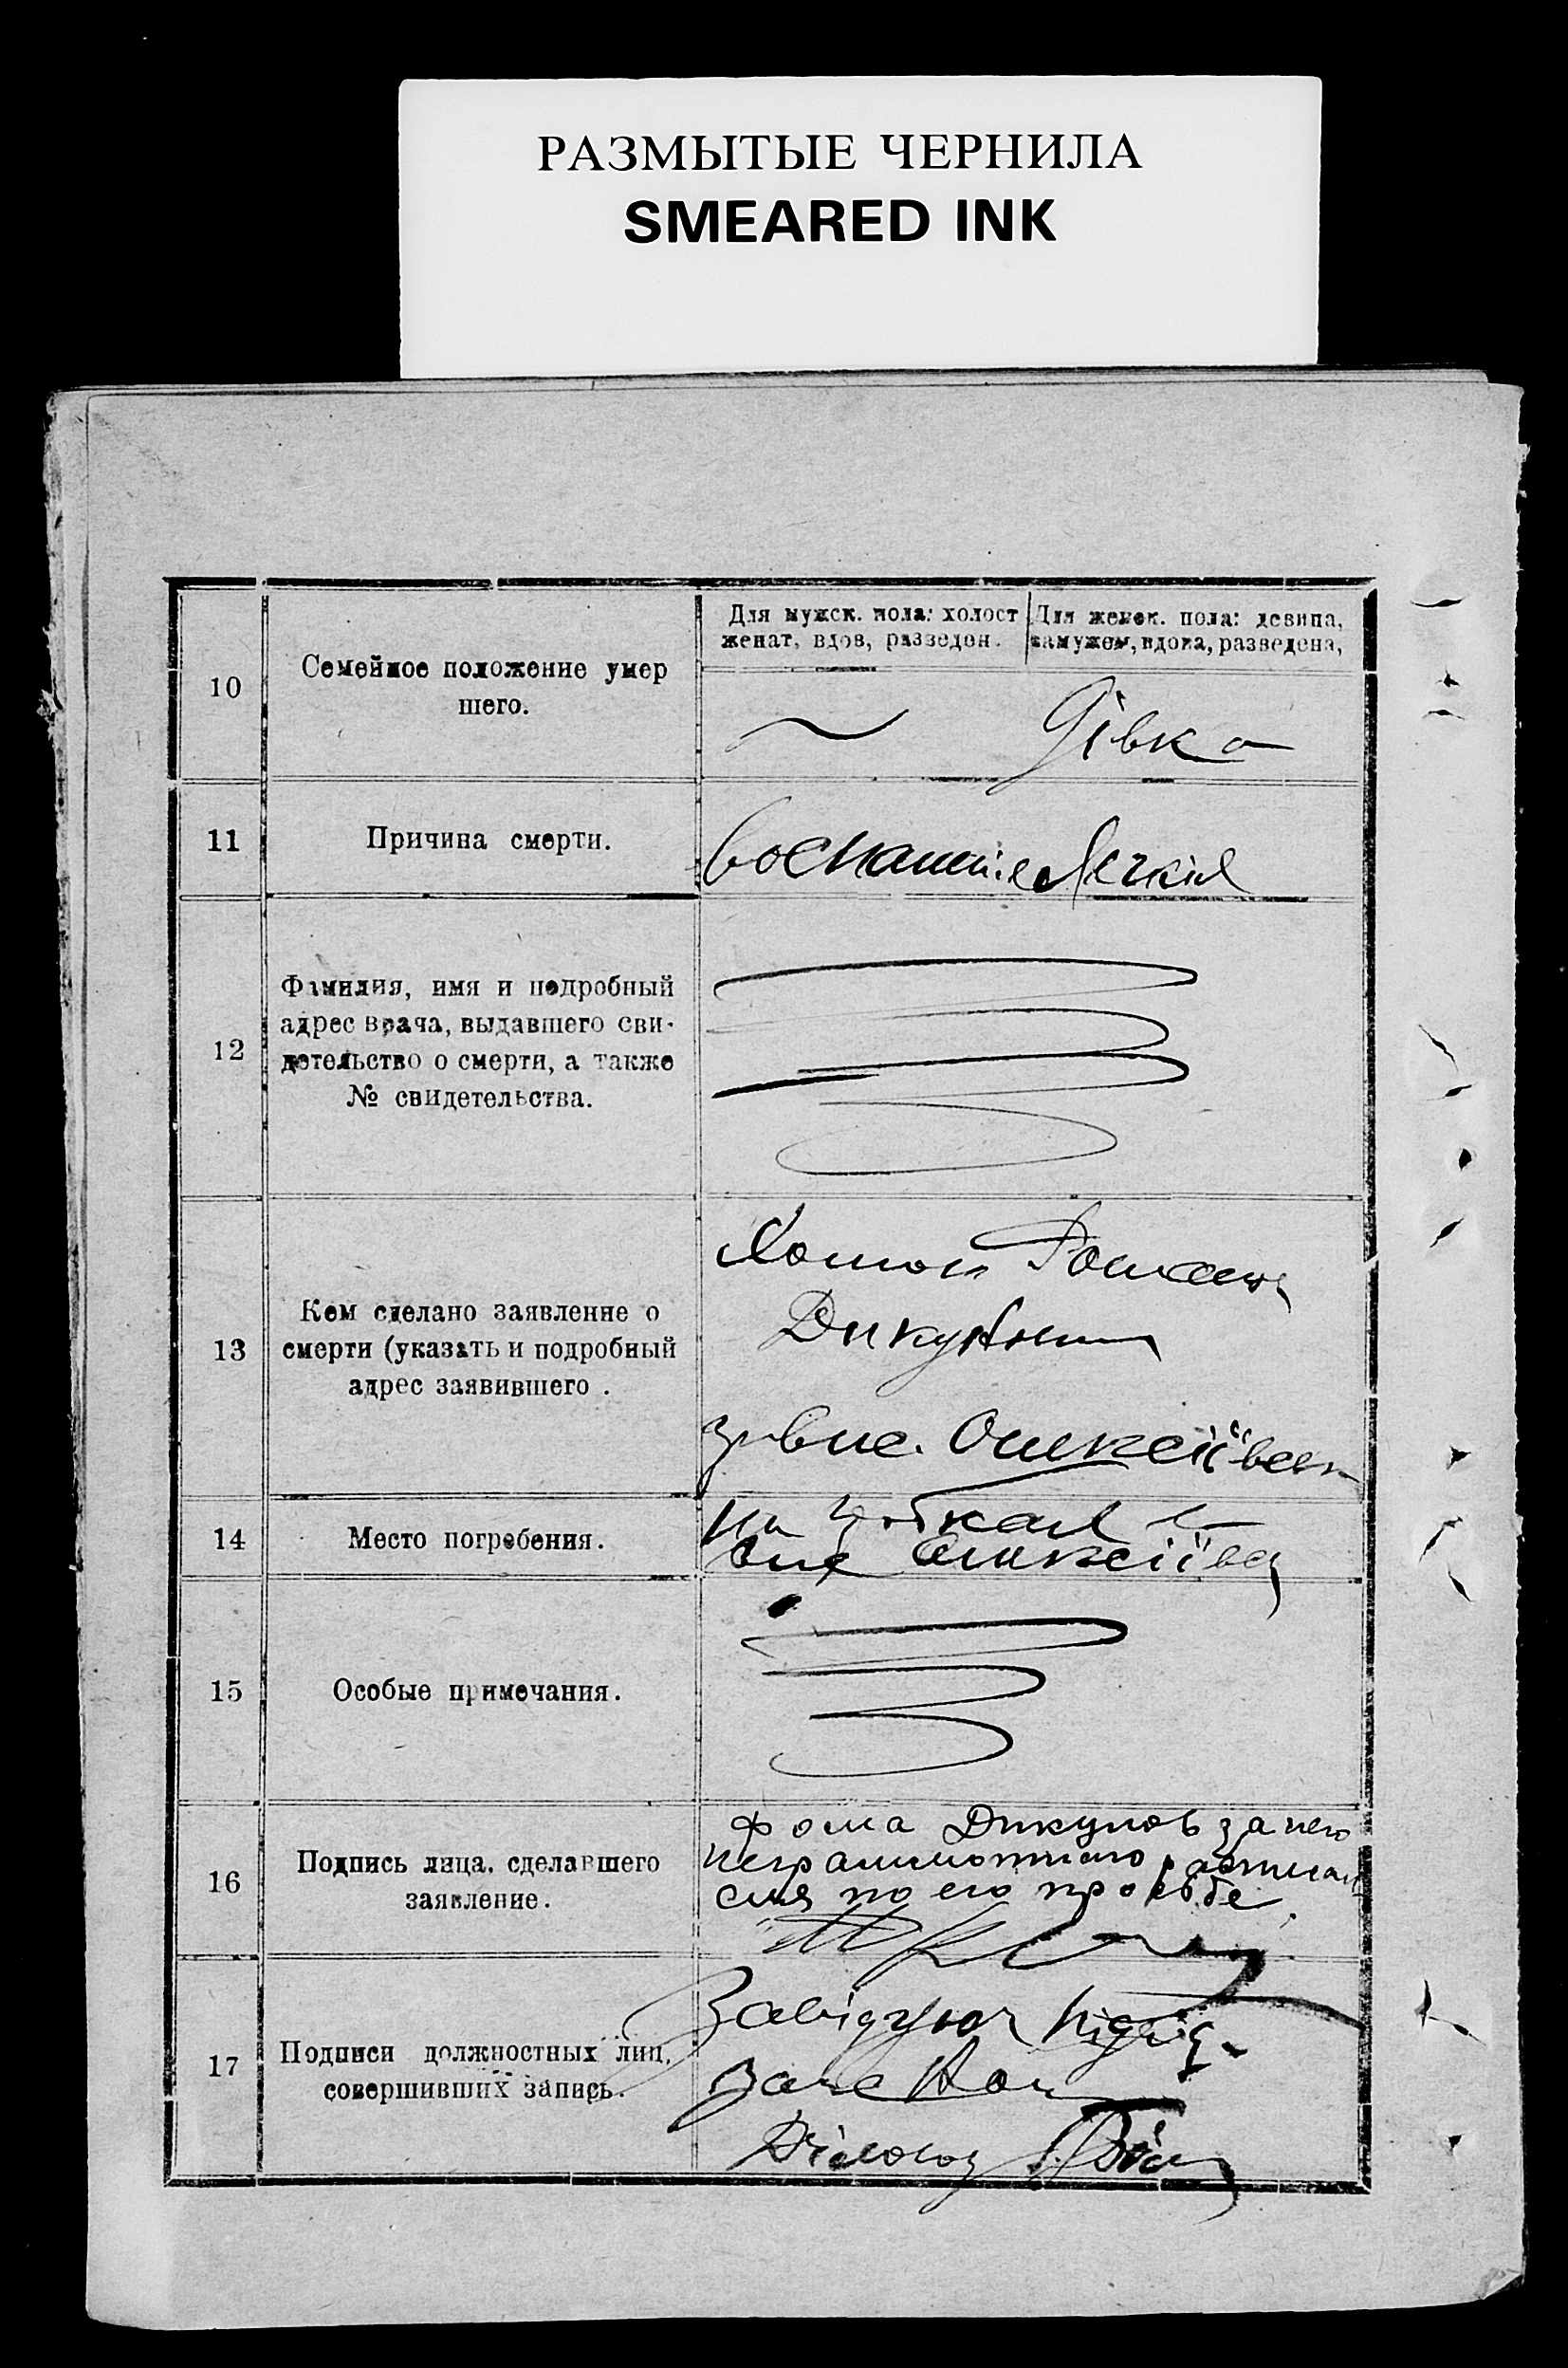 РАЗМЫТЫЕ ЧЕРНИЛА
SMEARED INK
Для мужск. пола: холост
женат, вдов, разведен.
Для женск. пола: девица,
замужем, вдова, разведена,
10
Семейное положение умер
шего.
Дівка
11
Причина смерти.
Воспаленіе Легкіх
12
Фамилия, имя и подробный
адрес врача, выдавшего сви-
детельство о смерти, а также
№ свидетельства.
13
Кем сделано заявление о
смерти (указать и подробный
адрес заявившего .
14
Место погребения.
На
Олексіівц
15
Особые примечания.
16
Подпись лица, сделавшего
заявление.
Фома Дикунов за него
неграммотного расписал
ся по его просьбе
17
Подписи должностных лиц,
совершивших запись.
Завідуюч
Діловод